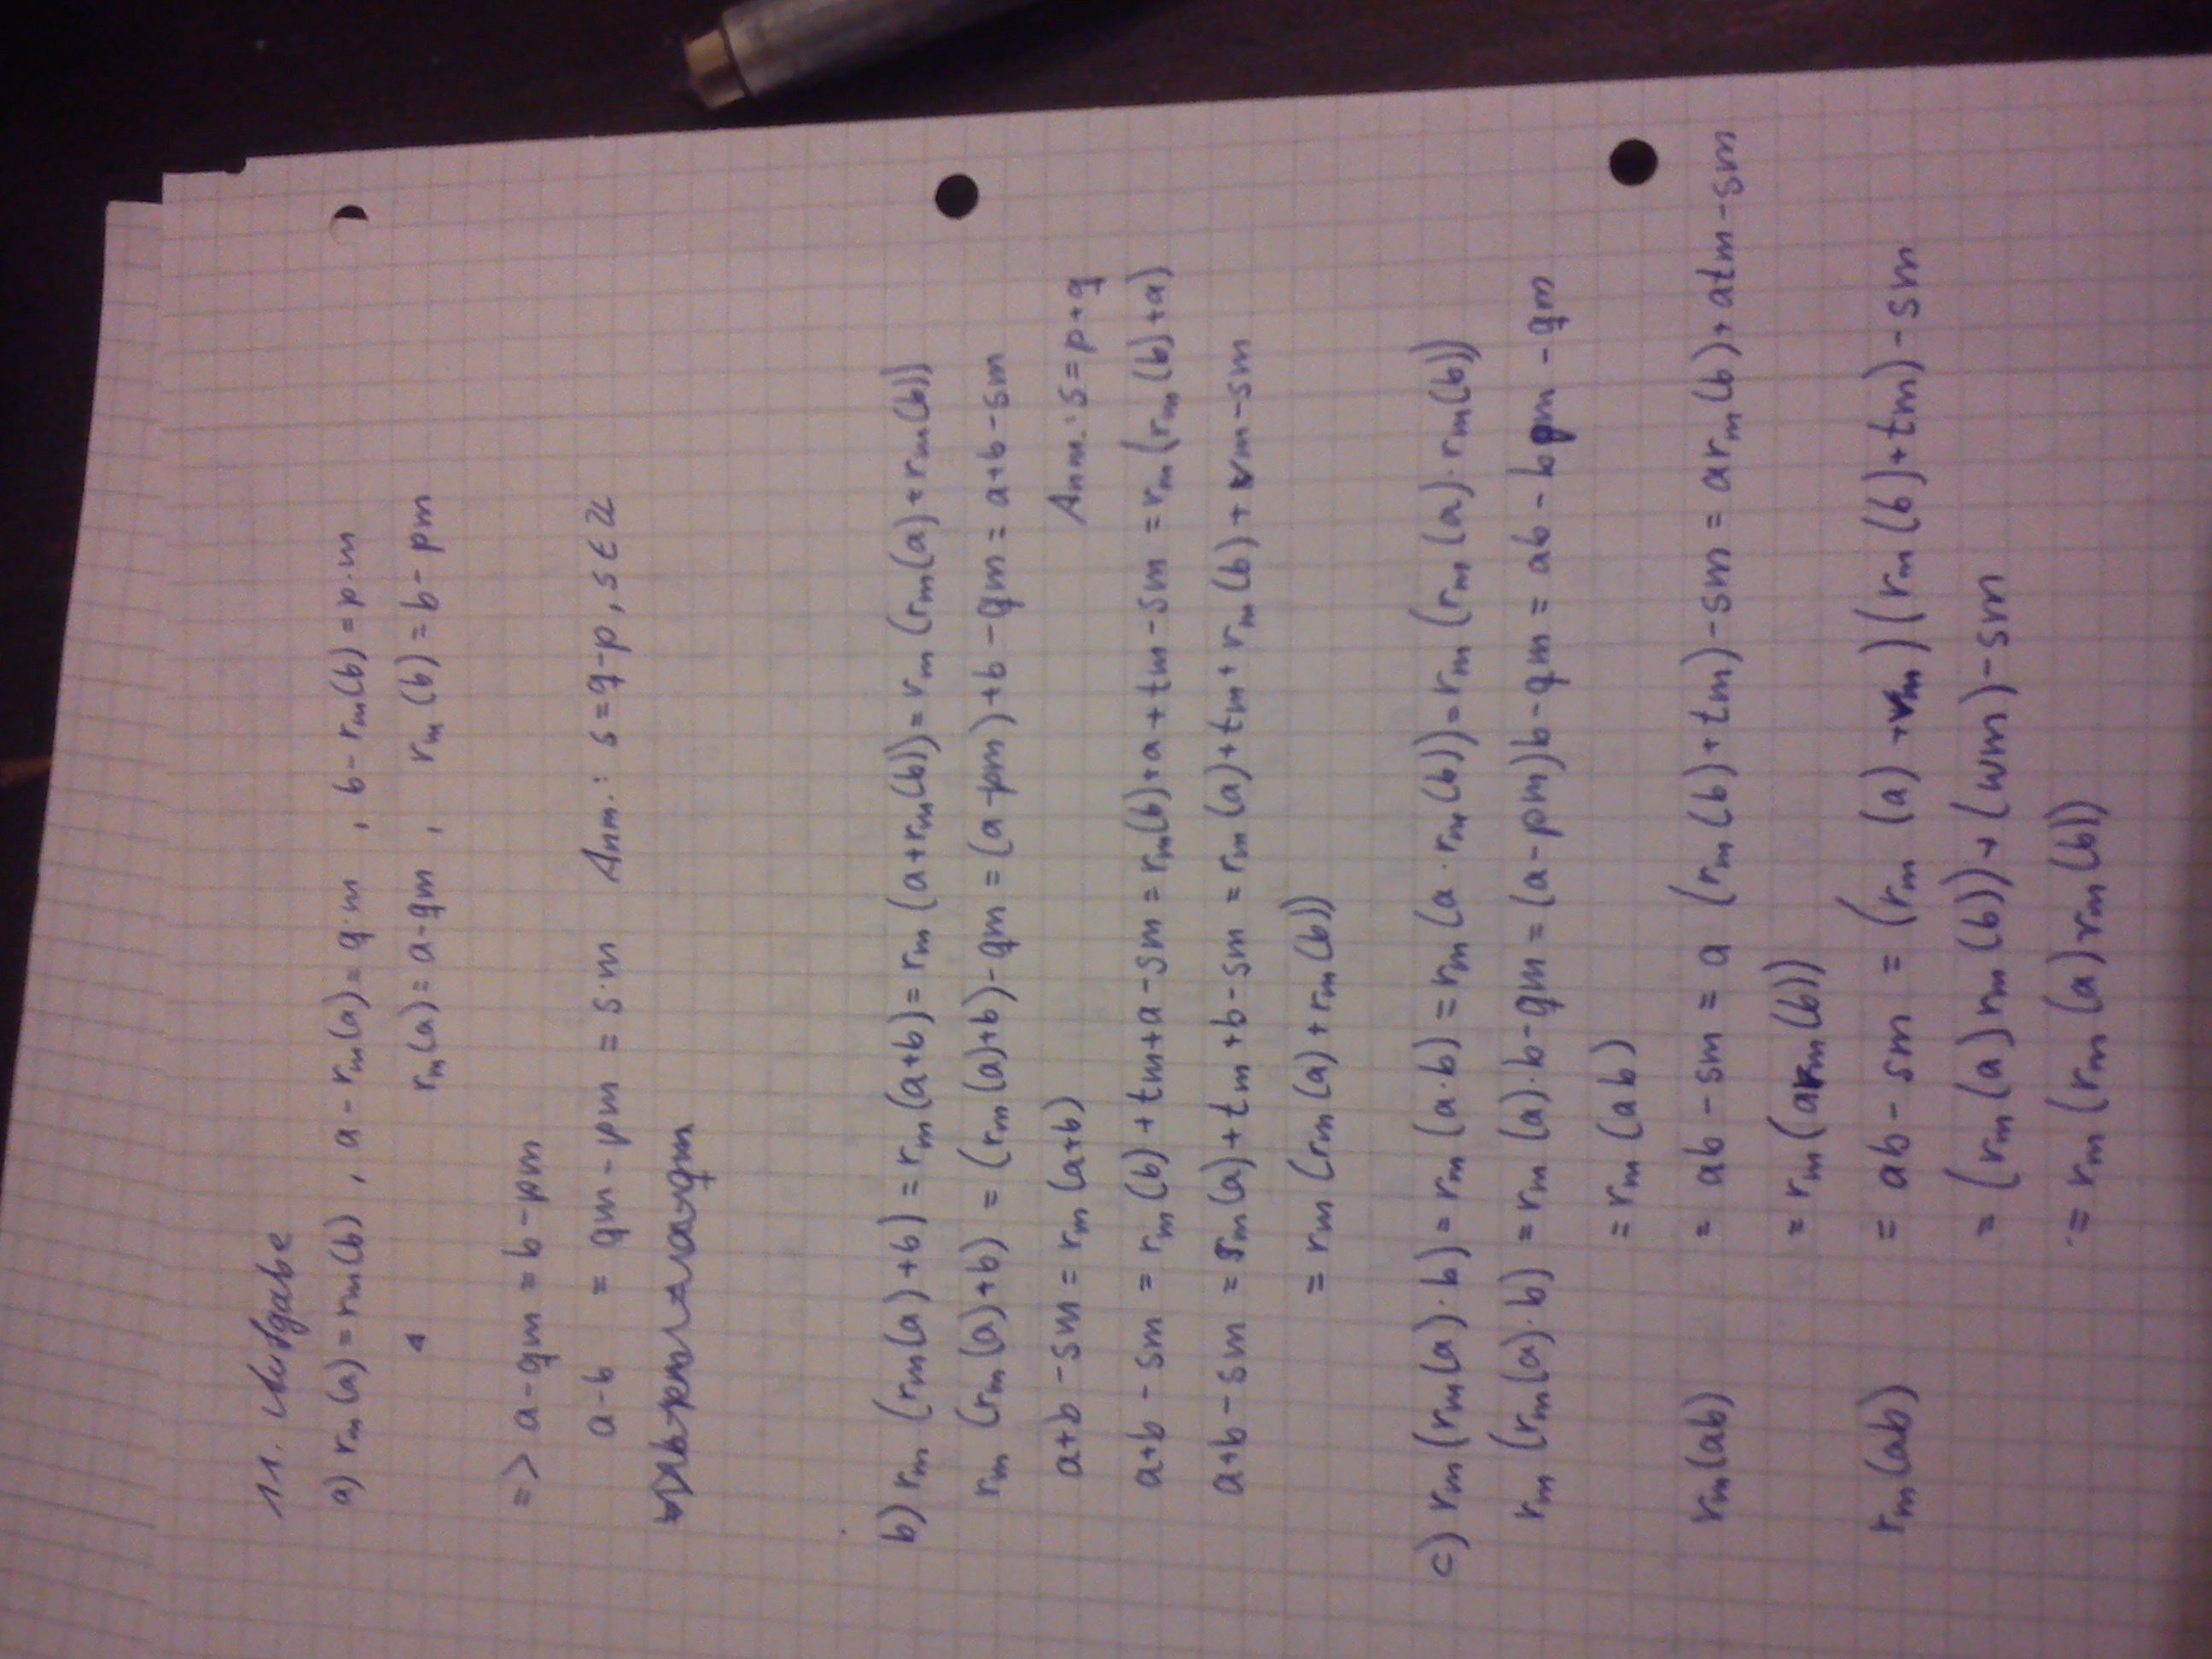 11. Aufgabe
a) rₘ(a) = rₘ(b) , a - rₘ(a) = q·m , b - rₘ(b) = p·m
rₘ(a) = a - qm , rₘ(b) = b - pm
=> a - qm = b - pm
a - b = qm - pm = s·m Anm.: s = q - p, s ∈ ℤ
b) rₘ(rₘ(a) + b) = rₘ(a+b) = rₘ(a + rₘ(b)) = rₘ(rₘ(a) + rₘ(b))
rₘ(rₘ(a) + b) = (rₘ(a) + b) - qm = (a - pm) + b - qm = a + b - sm
a + b - sm = rₘ(a+b) Anm.: s = p + q
a + b - sm = rₘ(b) + tm + a - sm = rₘ(b) + a + tm - sm = rₘ(rₘ(b) + a)
a + b - sm = rₘ(a) + tm + b - sm = rₘ(a) + tm + rₘ(b) + vm - sm
= rₘ(rₘ(a) + rₘ(b))
c) rₘ(rₘ(a)·b) = rₘ(a·b) = rₘ(a·rₘ(b)) = rₘ(rₘ(a)·rₘ(b))
rₘ(rₘ(a)·b) = rₘ(a)·b - qm = (a - pm)b - qm = ab - bpm - qm
= rₘ(ab)
rₘ(ab) = ab - sm = a (rₘ(b) + tm) - sm = arₘ(b) + atm - sm
= rₘ(arₘ(b))
rₘ(ab) = ab - sm = (rₘ(a) + vm)(rₘ(b) + tm) - sm
= (rₘ(a)rₘ(b)) + (wm) - sm
= rₘ(rₘ(a)rₘ(b))